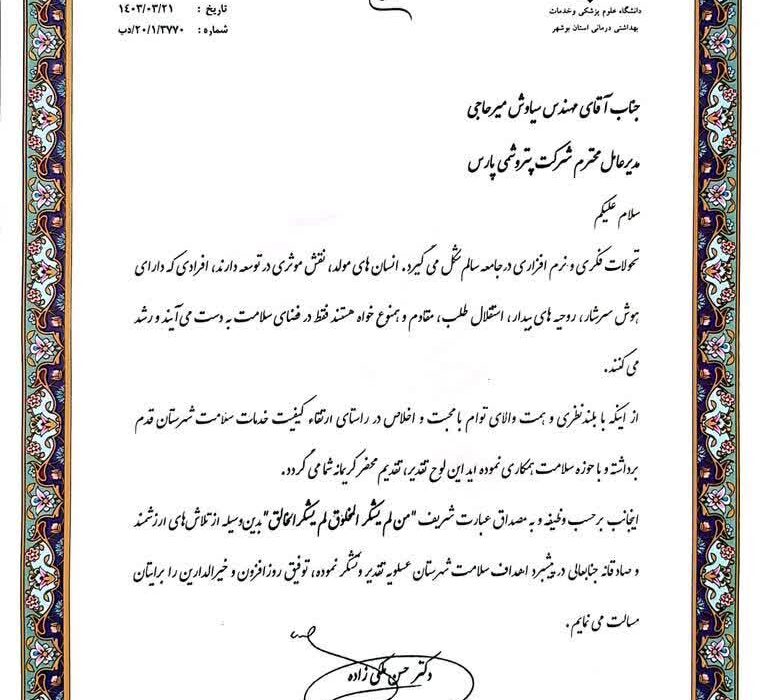 دانشگاه علوم پزشکی وخدمات
بهداشتی درمانی استان بوشهر
تاریخ : ۱۴۰۳/۰۳/۲۱
شماره : ۲۰/۱/۳۷۷۰/دب
جناب آقای مهندس سیاوش میرحاجی
مدیرعامل محترم شرکت پتروشیمی پارس
سلام علیکم
تحولات فکری و نرم افزاری در جامعه سالم شکل می گیرد. انسان های مولد، نقش موثری در توسعه دارند، افرادی که دارای
هوش سرشار، روحیه های بیدار، استقلال طلب، مقاوم و همنوع خواه هستند فقط در فضای سلامت به دست می آیند و رشد
می کنند.
از اینکه با بلندنظری و همت والای توام با محبت و اخلاص در راستای ارتقاء کیفیت خدمات سلامت شهرستان قدم
برداشته و با حوزه سلامت همکاری نموده اید این لوح تقدیر، تقدیم محضر کریمانه شما می گردد.
اینجانب برحسب وظیفه و به مصداق عبارت شریف "من لم یشکر المخلوق لم یشکر الخالق" بدین وسیله از تلاش های ارزشمند
و صادقانه جنابعالی در پیشبرد اهداف سلامت شهرستان عسلویه تقدیر وتشکر نموده، توفیق روزافزون و خیرالدارین را برایتان
مسالت می نمایم.
دکتر حسن ملکی زاده